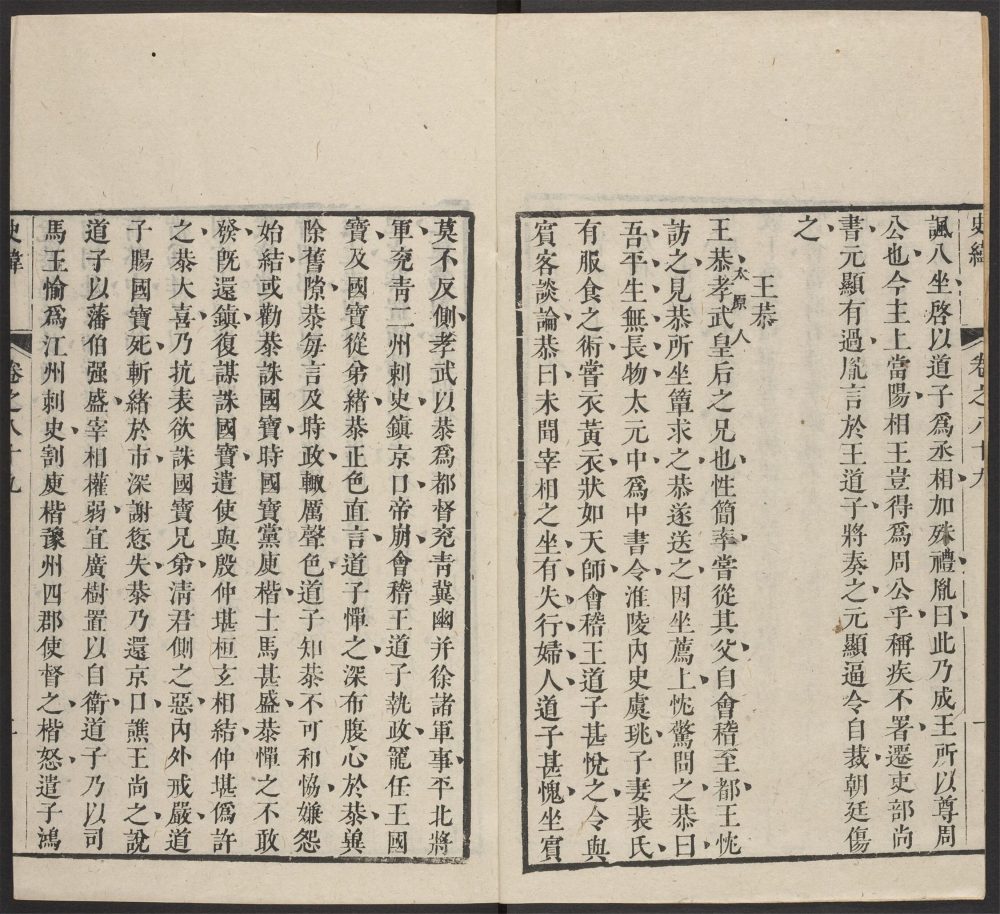 史緯 卷之八十九
諷八坐啓以道子爲丞相加殊禮胤曰此乃成王所以尊周
公也今主上當陽相王豈得爲周公乎稱疾不署遷吏部尚
書元顯有過胤言於王道子將奏之元顯逼令自裁朝廷傷
之
王恭
太原人
王恭孝武皇后之兄也性簡率嘗從其父自會稽至都王忱
訪之見恭所坐簟求之恭遂送之因坐薦上忱驚問之恭曰
吾平生無長物太元中爲中書令淮陵內史虞珧子妻裴氏
有服食之術嘗衣黃衣狀如天師會稽王道子甚悅之令與
賓客談論恭曰未聞宰相之坐有失行婦人道子甚愧坐賓
莫不反側孝武以恭爲都督兗青冀幽并徐諸軍事平北將
軍兗青二州刺史鎮京口帝崩會稽王道子執政寵任王國
寶及國寶從弟緒恭正色直言道子憚之深布腹心於恭冀
除舊隙恭每言及時政輙厲聲色道子知恭不可和恊嫌怨
始結或勸恭誅國寶時國寶黨庾楷士馬甚盛恭憚之不敢
發旣還鎮復謀誅國寶遣使與殷仲堪桓玄相結仲堪僞許
之恭大喜乃抗表欲誅國寶兄弟清君側之惡內外戒嚴道
子賜國寶死斬緒於市深謝愆失恭乃還京口譙王尚之說
道子以藩伯强盛宰相權弱宜廣樹置以自衛道子乃以司
馬王愉爲江州刺史割庾楷豫州四郡使督之楷怒遣子鴻
史緯 卷之八十九